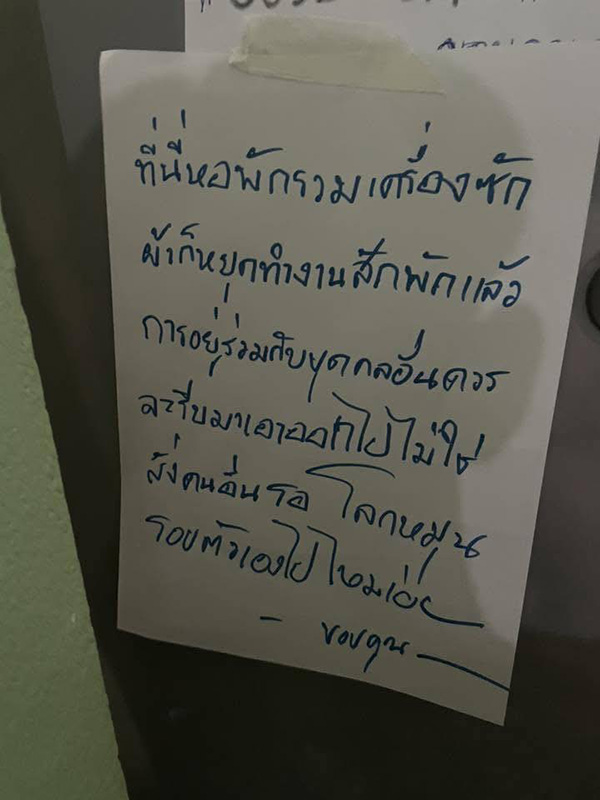 ที่นี่หอพักรวมเครื่องซัก
ผ้าก็หยุดทำงานสักพักแล้ว
การอยู่ร่วมกับบุคคลอื่นควร
จะรีบมาเอาออกไปไม่ใช่
สั่งคนอื่นรอ โลกหมุน
รอบตัวเองไปไหมเอ่ย
- ขอบคุณ